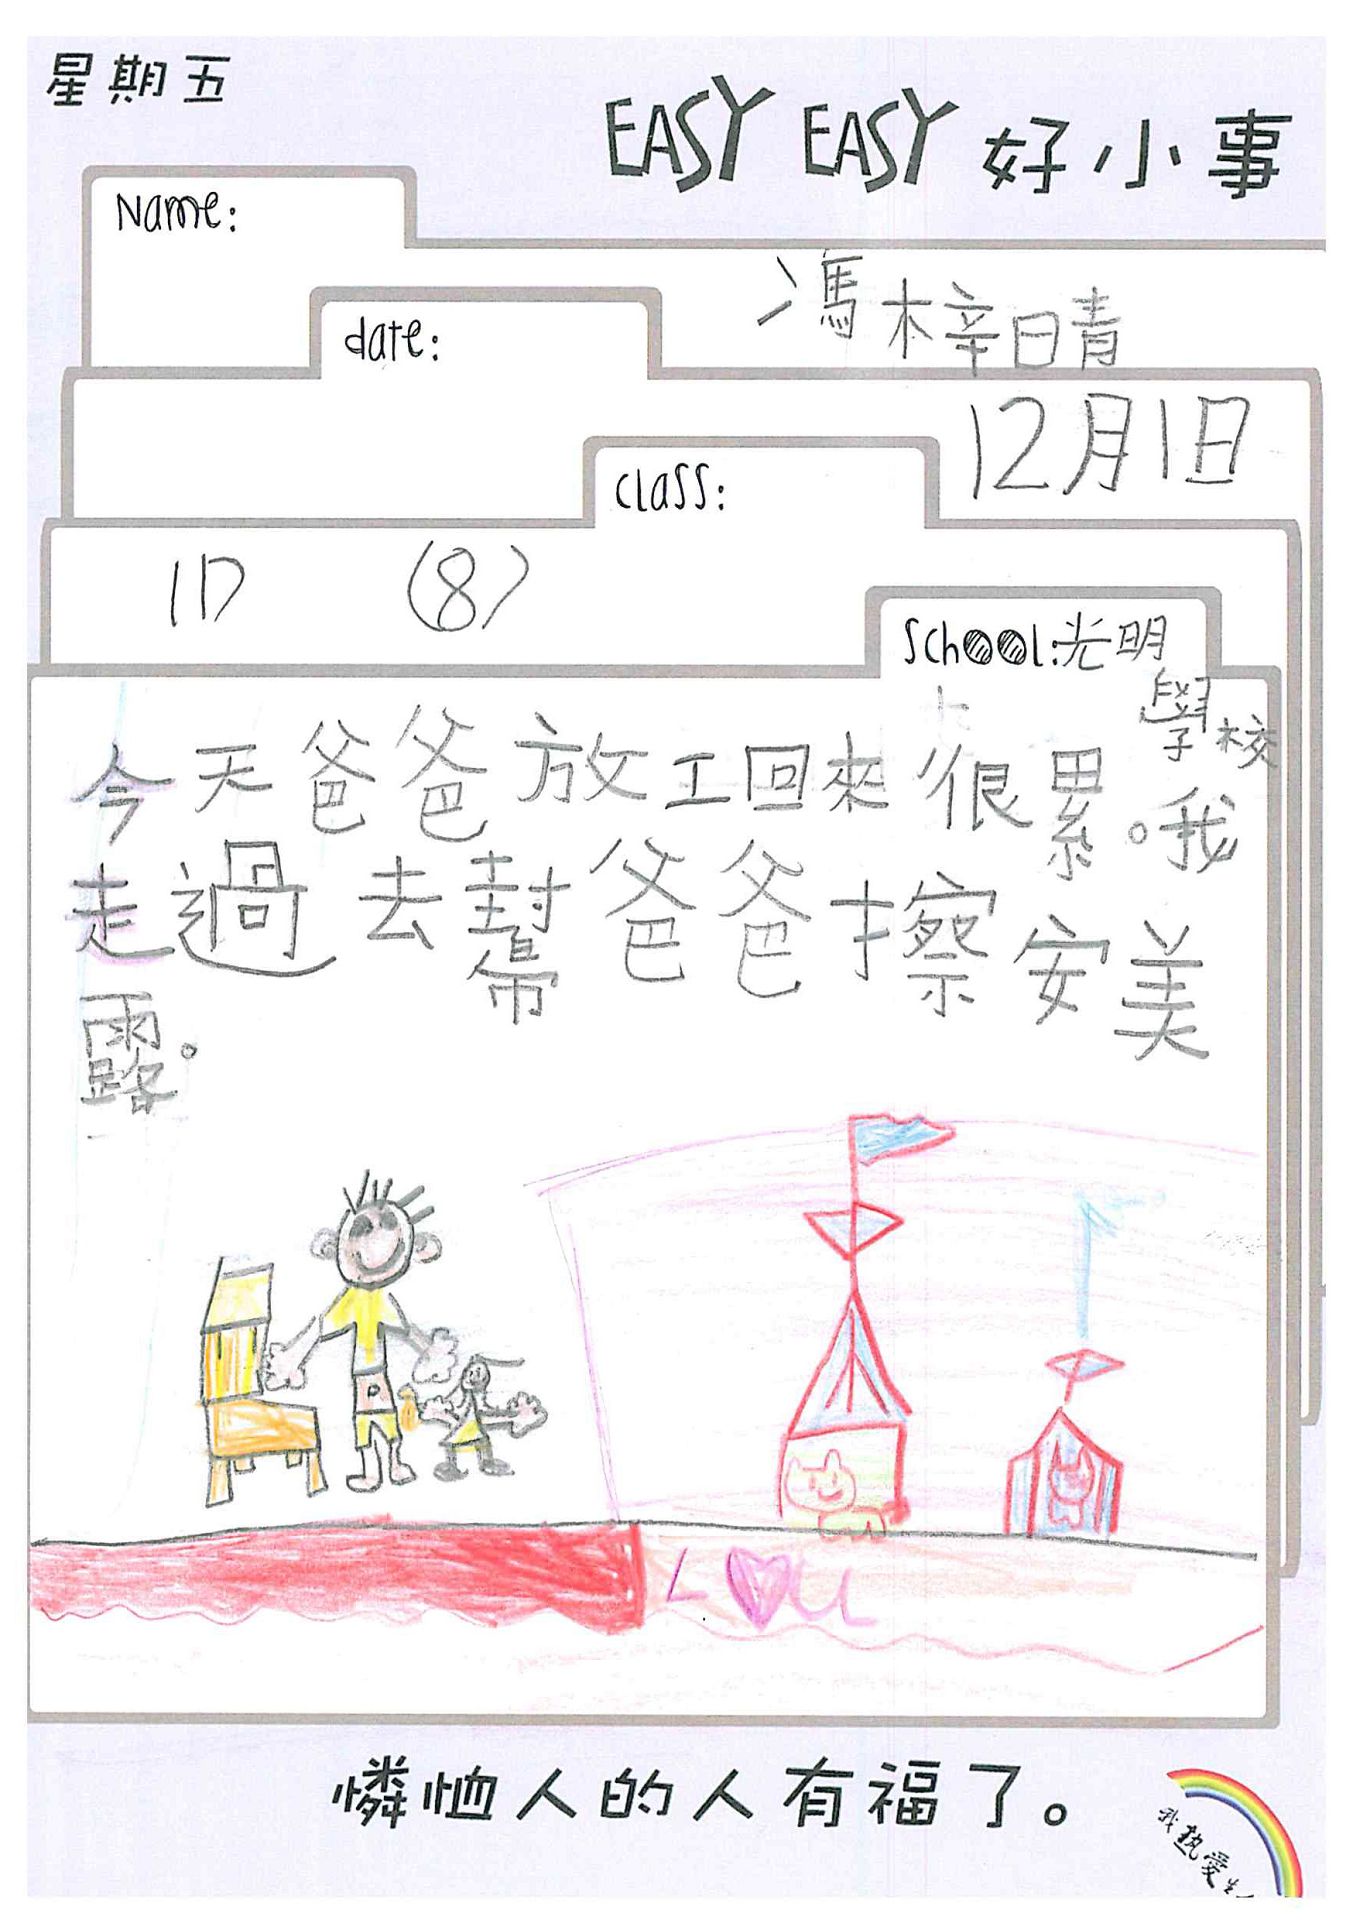 星期五
EASY EASY 好小事
Name:
馮梓晴
date:
12月1日
class:
1D (8)
School:光明
學校
今天爸爸放工回來很累。我
走過去幫爸爸擦安美
露。
L♥U
憐恤人的人有福了。
我熱愛生